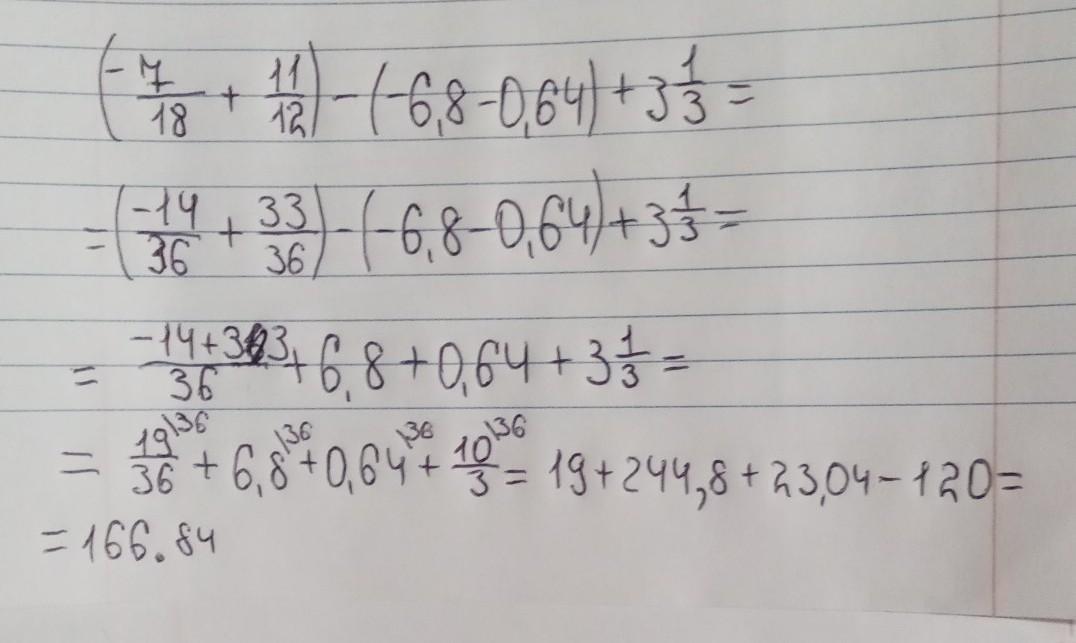 (-7/18 + 11/12) - (-6,8 - 0,64) + 3 1/3 =
= (-14/36 + 33/36) - (-6,8 - 0,64) + 3 1/3 =
= (-14+33)/36 + 6,8 + 0,64 + 3 1/3 =
= 19/36 \36 + 6,8 \36 + 0,64 \36 + 10/3 \36 = 19 + 244,8 + 23,04 - 120 =
= 166.84